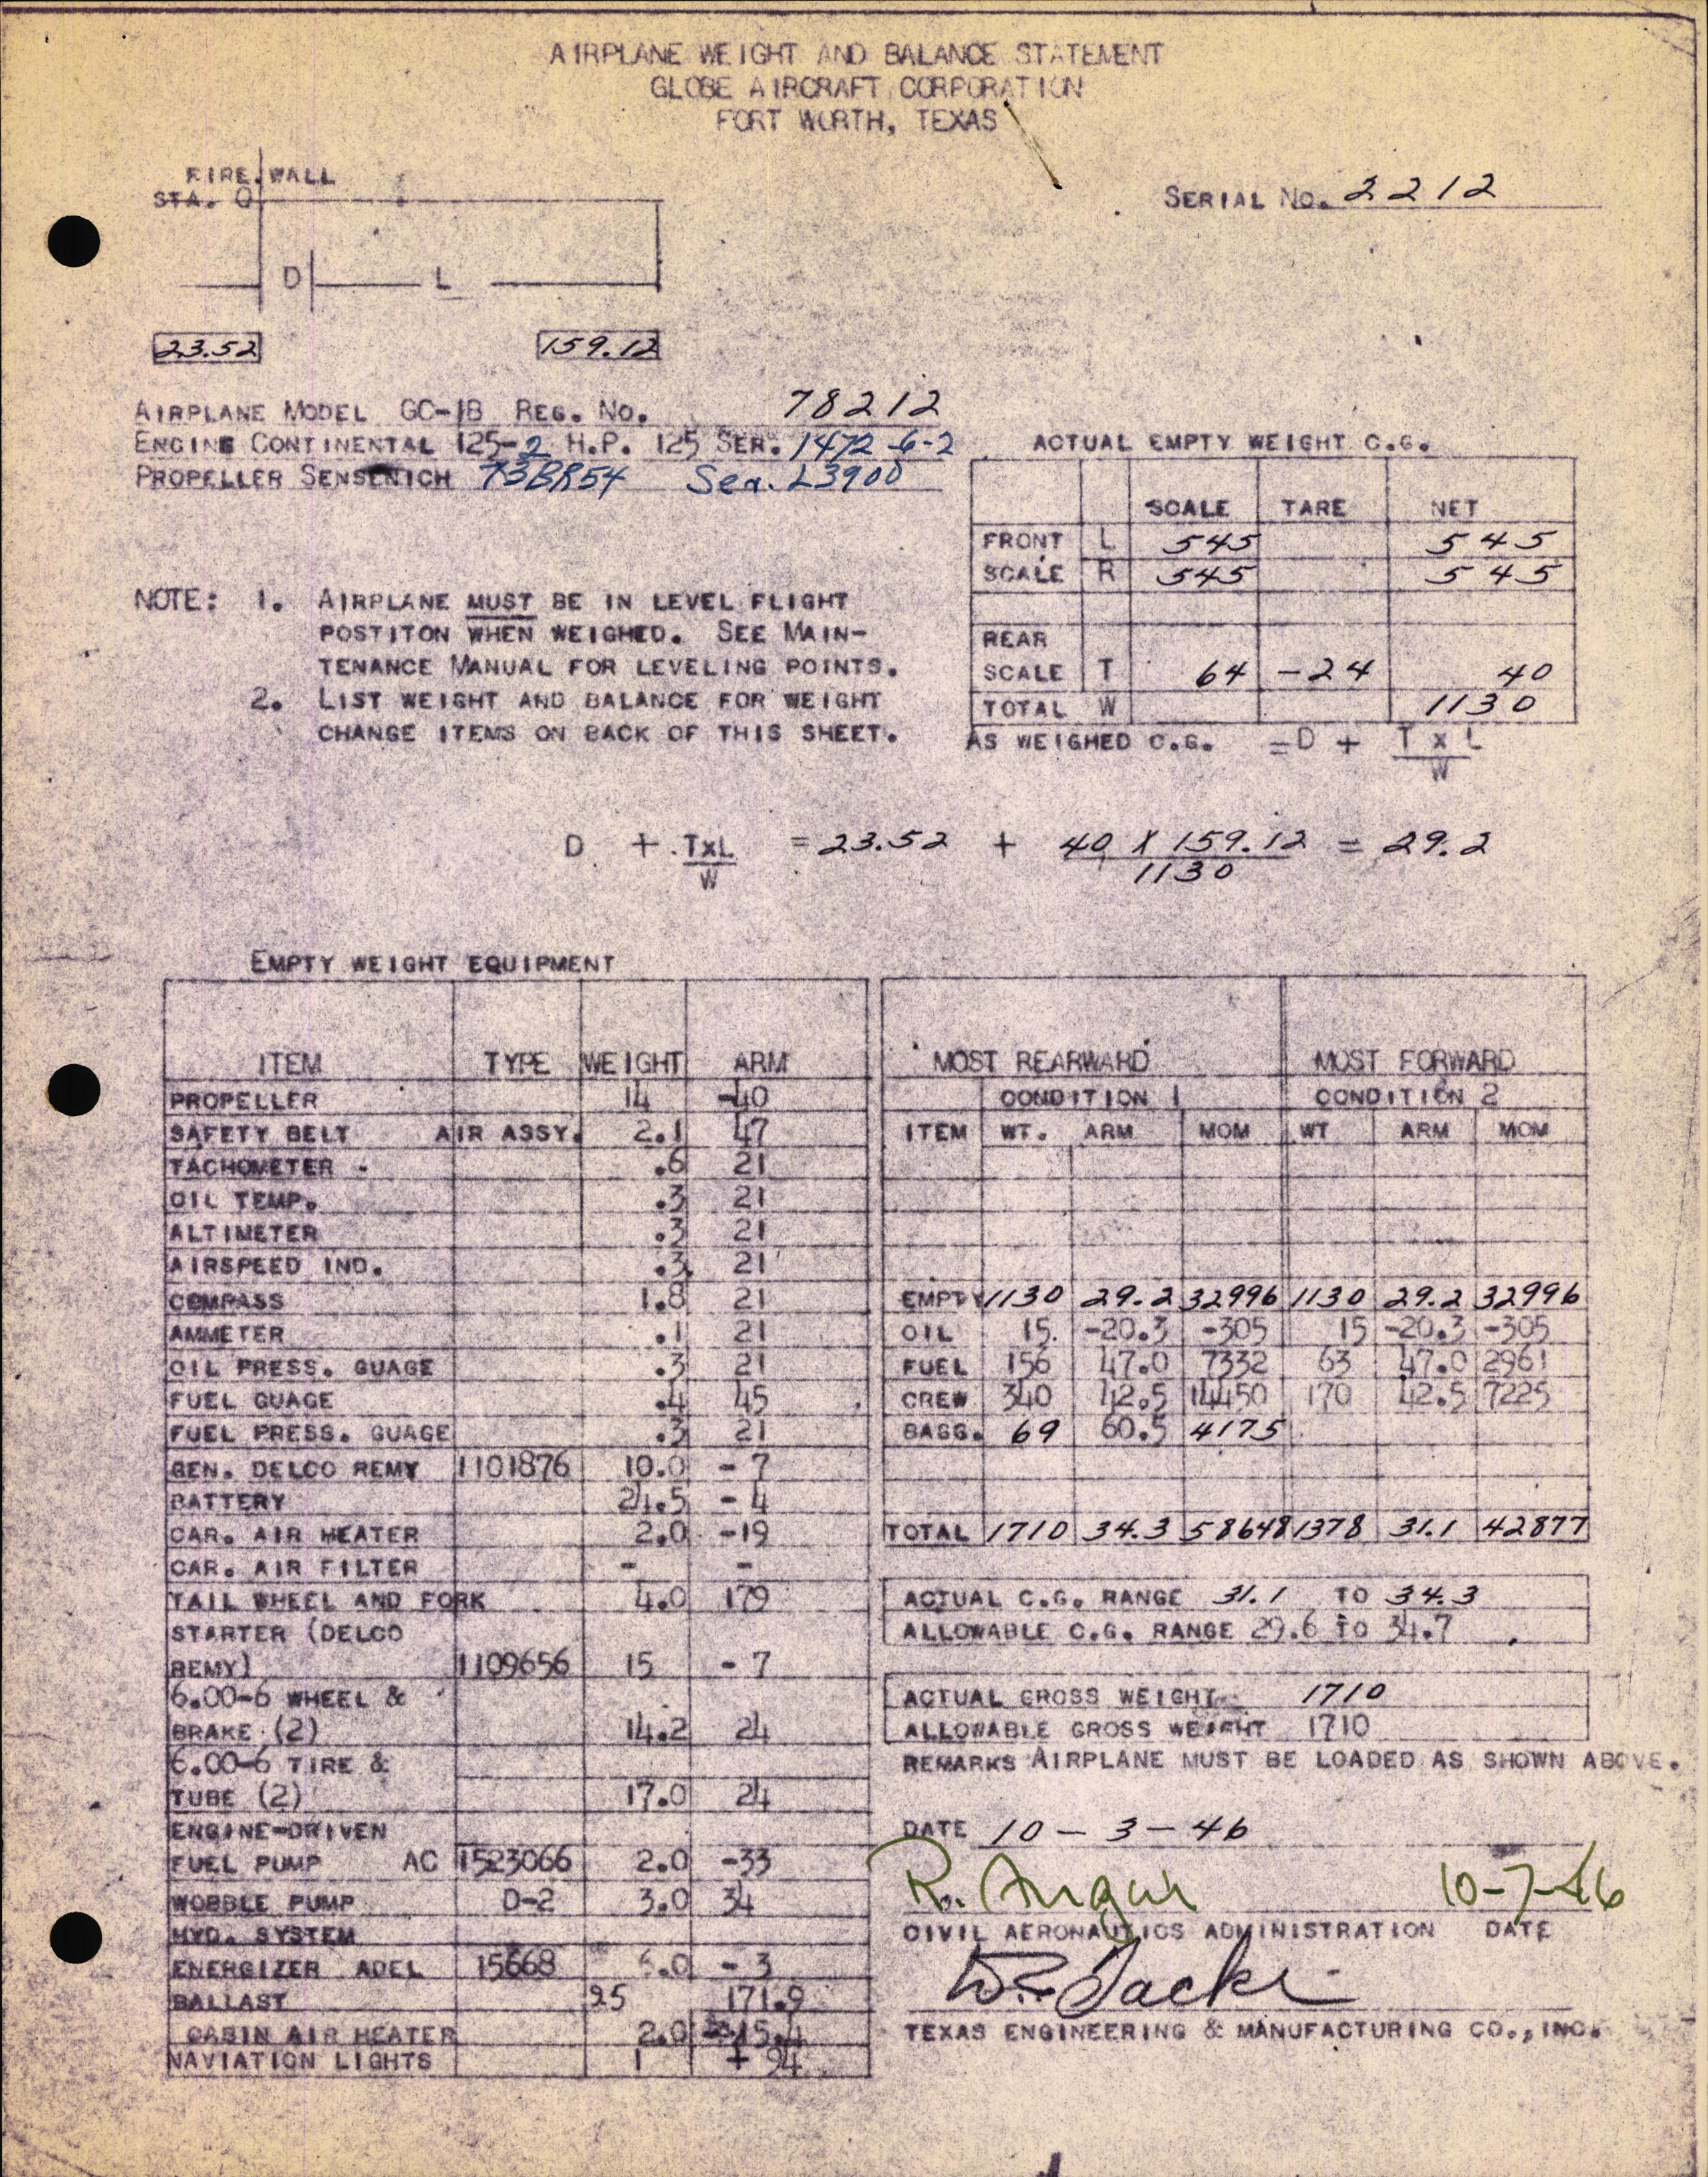 AIRPLANE WEIGHT AND BALANCE STATEMENT
GLOBE AIRCRAFT CORPORATION
FORT WORTH, TEXAS
FIRE WALL
STA. 0
SERIAL NO. 2212
D L
23.52 159.12
AIRPLANE MODEL GC-1B REG. NO. 78212
ENGINE CONTINENTAL 125-2 H.P. 125 SER. 1472 6-2
PROPELLER SENSENICH 73BR54 Ser. L3900
ACTUAL EMPTY WEIGHT C.G.
SCALE TARE NET
FRONT L 545 545
SCALE R 545 545
REAR
SCALE T 64 -24 40
TOTAL W 1130
AS WEIGHED C.G. =D + T x L
W
NOTE: 1. AIRPLANE MUST BE IN LEVEL FLIGHT
POSTITON WHEN WEIGHED. SEE MAIN-
TENANCE MANUAL FOR LEVELING POINTS.
2. LIST WEIGHT AND BALANCE FOR WEIGHT
CHANGE ITEMS ON BACK OF THIS SHEET.
D + TxL = 23.52 + 40 X 159.12 = 29.2
W 1130
EMPTY WEIGHT EQUIPMENT
ITEM TYPE WEIGHT ARM
PROPELLER 14 -40
SAFETY BELT AIR ASSY. 2.1 47
TACHOMETER .6 21
OIL TEMP. .3 21
ALTIMETER .3 21
AIRSPEED IND. .3 21
COMPASS 1.8 21
AMMETER .1 21
OIL PRESS. GUAGE .3 21
FUEL GUAGE .4 45
FUEL PRESS. GUAGE .3 21
GEN. DELCO REMY 1101876 10.0 - 7
BATTERY 24.5 - 4
CAR. AIR HEATER 2.0 -19
CAR. AIR FILTER - -
TAIL WHEEL AND FORK 4.0 179
STARTER (DELCO
REMY) 1109656 15 - 7
6.00-6 WHEEL &
BRAKE (2) 14.2 24
6.00-6 TIRE &
TUBE (2) 17.0 24
ENGINE-DRIVEN
FUEL PUMP AC 1523066 2.0 -33
WOBBLE PUMP D-2 3.0 34
HYD. SYSTEM
ENERGIZER ADEL 15668 - 3
BALLAST 25 171.9
CABIN AIR HEATER 2.0 15.4
NAVIATION LIGHTS 1 + 94
MOST REARWARD MOST FORWARD
CONDITION 1 CONDITION 2
ITEM WT. ARM MOM WT ARM MOM
EMPTY 1130 29.2 32996 1130 29.2 32996
OIL 15. -20.3 -305 15 -20.3 -305
FUEL 156 47.0 7332 63 47.0 2961
CREW 340 42.5 14450 170 42.5 7225
BAGG. 69 60.5 4175
TOTAL 1710 34.3 58648 1378 31.1 42877
ACTUAL C.G. RANGE 31.1 TO 34.3
ALLOWABLE C.G. RANGE 29.6 TO 34.7
ACTUAL GROSS WEIGHT 1710
ALLOWABLE GROSS WEIGHT 1710
REMARKS AIRPLANE MUST BE LOADED AS SHOWN ABOVE.
DATE 10-3-46
R. 10-7-46
CIVIL AERONAUTICS ADMINISTRATION DATE
TEXAS ENGINEERING & MANUFACTURING CO., INC.